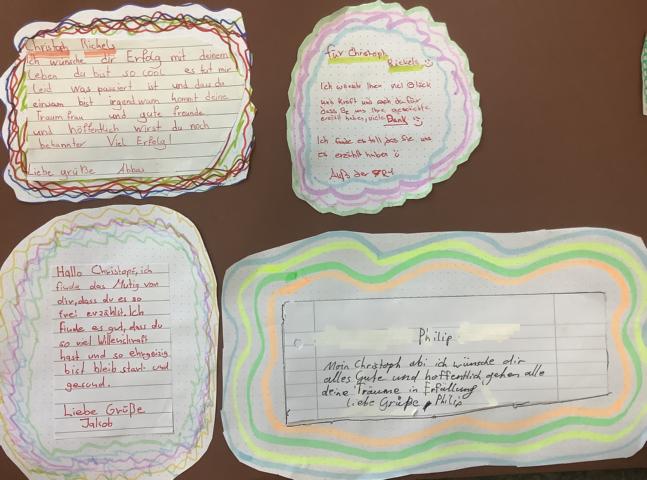 Christoph Rickels
Ich wünsche dir Erfolg mit deinem
Leben du bist so cool es tut mir
Leid was passiert ist und das du
einsam bist irgendwann kommt deine
Traumfrau und gute freunde
und höffentlich wirst du noch
bekannter Viel Erfolg!
Liebe grüße Abbas
für Christoph
Rickels
Ich wünsche Ihnen viel Glück
und Kraft und auch dafür
dass Sie uns Ihre geschichte
erzählt haben, vielen Dank
Ich finde es toll das Sie uns
es erzählt haben
Auß der
Hallo Christoph, ich
finde das Mutig von
dir, dass du es so
frei erzählst. Ich
finde es gut, dass du
so viel Willenskraft
hast und so ehrgeizig
bist bleib stark und
gesund.
Liebe Grüße
Jakob
Philip
Moin Christoph abi ich wünsche dir
alles gute und hoffentlich gehen alle
deine Träume in Erfüllung
Liebe Grüße, Philip